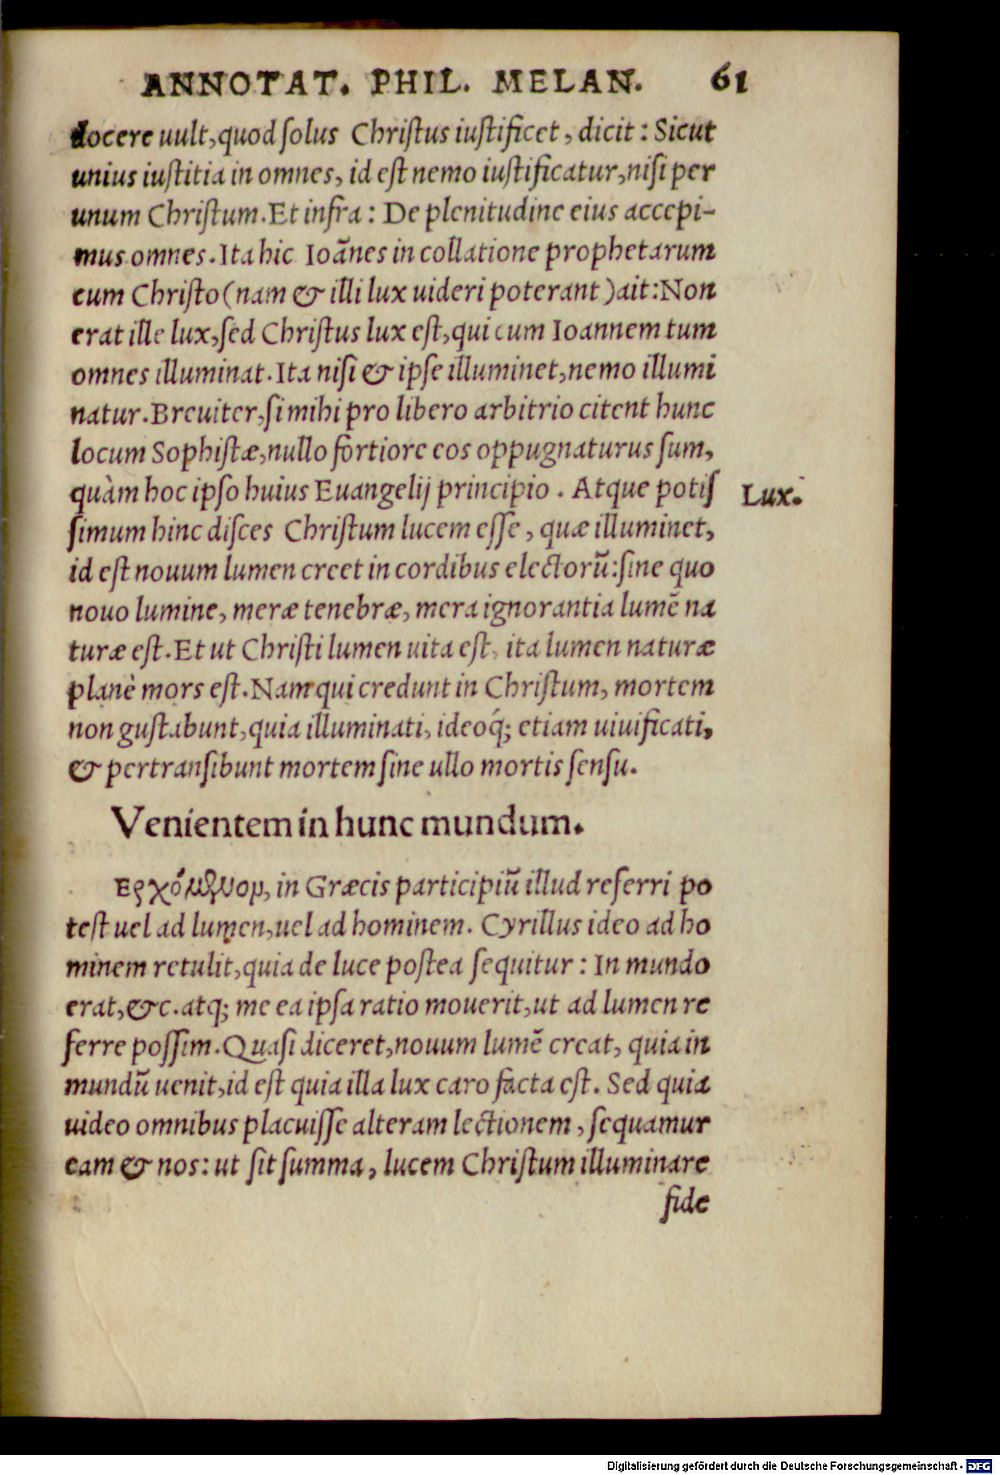 ANNOTAT. PHIL. MELAN. 61
docere uult, quod ſolus Chriſtus iuſtificet, dicit: Sicut
unius iuſtitia in omnes, id eſt nemo iuſtificatur, niſi per
unum Chriſtum. Et infra: De plenitudine eius accepi-
mus omnes. Ita hic Ioãnes in collatione prophetarum
cum Chriſto (nam & illi lux uideri poterant) ait: Non
erat ille lux, ſed Chriſtus lux eſt, qui cum Ioannem tum
omnes illuminat. Ita niſi & ipſe illuminet, nemo illumi
natur. Breuiter, ſi mihi pro libero arbitrio citent hunc
locum Sophiſtæ, nullo fortiore eos oppugnaturus ſum,
quàm hoc ipſo huius Euangelij principio. Atque potiſ
Lux.
ſimum hinc diſces Chriſtum lucem eſſe, quæ illuminet,
id eſt nouum lumen creet in cordibus electorũ: ſine quo
nouo lumine, meræ tenebræ, mera ignorantia lumẽ na
turæ eſt. Et ut Chriſti lumen uita eſt, ita lumen naturæ
planè mors eſt. Nam qui credunt in Chriſtum, mortem
non guſtabunt, quia illuminati, ideoq́; etiam uiuificati,
& pertranſibunt mortem ſine ullo mortis ſenſu.
Venientem in hunc mundum.
Ερχόμενομ, in Græcis participiũ illud referri po
teſt uel ad lumen, uel ad hominem. Cyrillus ideo ad ho
minem retulit, quia de luce poſtea ſequitur: In mundo
erat, &c. atq; me ea ipſa ratio mouerit, ut ad lumen re
ferre poſſim. Quaſi diceret, nouum lumẽ creat, quia in
mundũ uenit, id eſt quia illa lux caro facta eſt. Sed quia
uideo omnibus placuiſſe alteram lectionem, ſequamur
eam & nos: ut ſit ſumma, lucem Chriſtum illuminare
fide
Digitalisierung gefördert durch die Deutsche Forschungsgemeinschaft - DFG